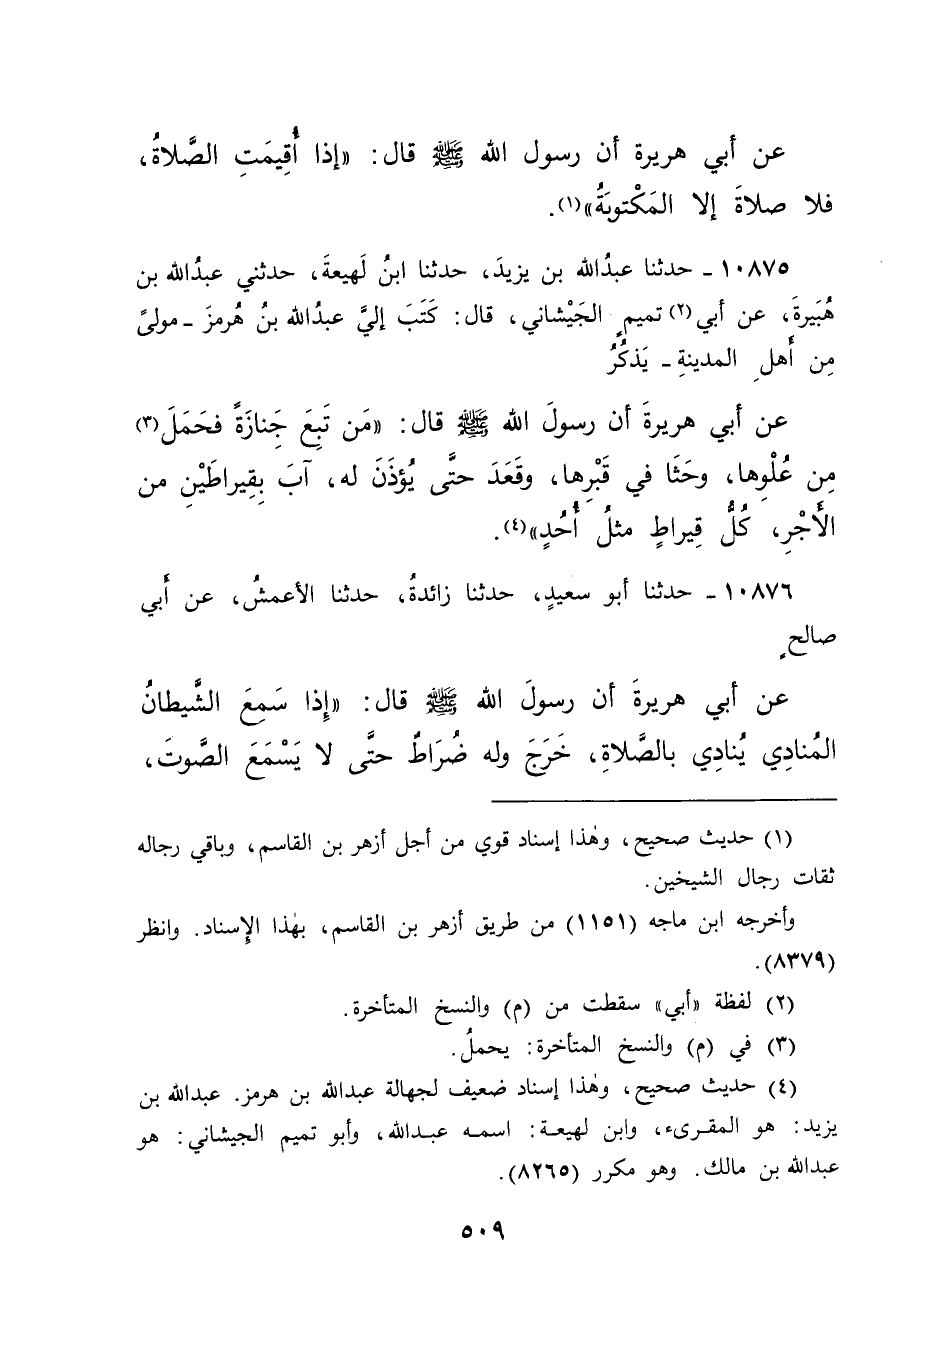 عن أبي هريرة أن رسول الله ﷺ قال: «إذا أُقِيمَتِ الصَّلاةُ،
فلا صلاةَ إلا المَكْتوبَةُ»(١).
١٠٨٧٥ ـ حدثنا عبدُالله بن يزيدَ، حدثنا ابنُ لَهيعةَ، حدثني عبدُالله بن
هُبَيرةَ، عن أبي(٢) تميمٍ الجَيْشاني، قال: كَتَبَ إليَّ عبدُالله بنُ هُرمزَ ـ مولىً
مِن أَهلِ المدينةِ ـ يَذكُرُ
عن أبي هريرةَ أن رسولَ الله ﷺ قال: «مَن تَبِعَ جَنازَةً فحَمَلَ(٣)
مِن عُلْوِها، وحَثَا في قَبْرِها، وقَعَدَ حتَّى يُؤذَنَ له، آبَ بِقِيراطَيْنِ من
الأَجْرِ، كُلُّ قِيراطٍ مثلُ أُحُدٍ»(٤).
١٠٨٧٦ ـ حدثنا أبو سعيدٍ، حدثنا زائدةُ، حدثنا الأعمشُ، عن أَبي
صالحٍ
عن أبي هريرةَ أن رسولَ الله ﷺ قال: «إِذا سَمِعَ الشَّيطانُ
المُنادِي يُنادِي بالصَّلاةِ، خَرَجَ وله ضُرَاطٌ حتَّى لا يَسْمَعَ الصَّوتَ،
(١) حديث صحيح، وهٰذا إسناد قوي من أجل أزهر بن القاسم، وباقي رجاله
ثقات رجال الشيخين.
وأخرجه ابن ماجه (١١٥١) من طريق أزهر بن القاسم، بهٰذا الإِسناد. وانظر
(٨٣٧٩).
(٢) لفظة «أبي» سقطت من (م) والنسخ المتأخرة.
(٣) في (م) والنسخ المتأخرة: يحملُ.
(٤) حديث صحيح، وهٰذا إسناد ضعيف لجهالة عبدالله بن هرمز. عبدالله بن
يزيد: هو المقرىء، وابن لهيعة: اسمه عبدالله، وأبو تميم الجيشاني: هو
عبدالله بن مالك. وهو مكرر (٨٢٦٥).
٥٠٩